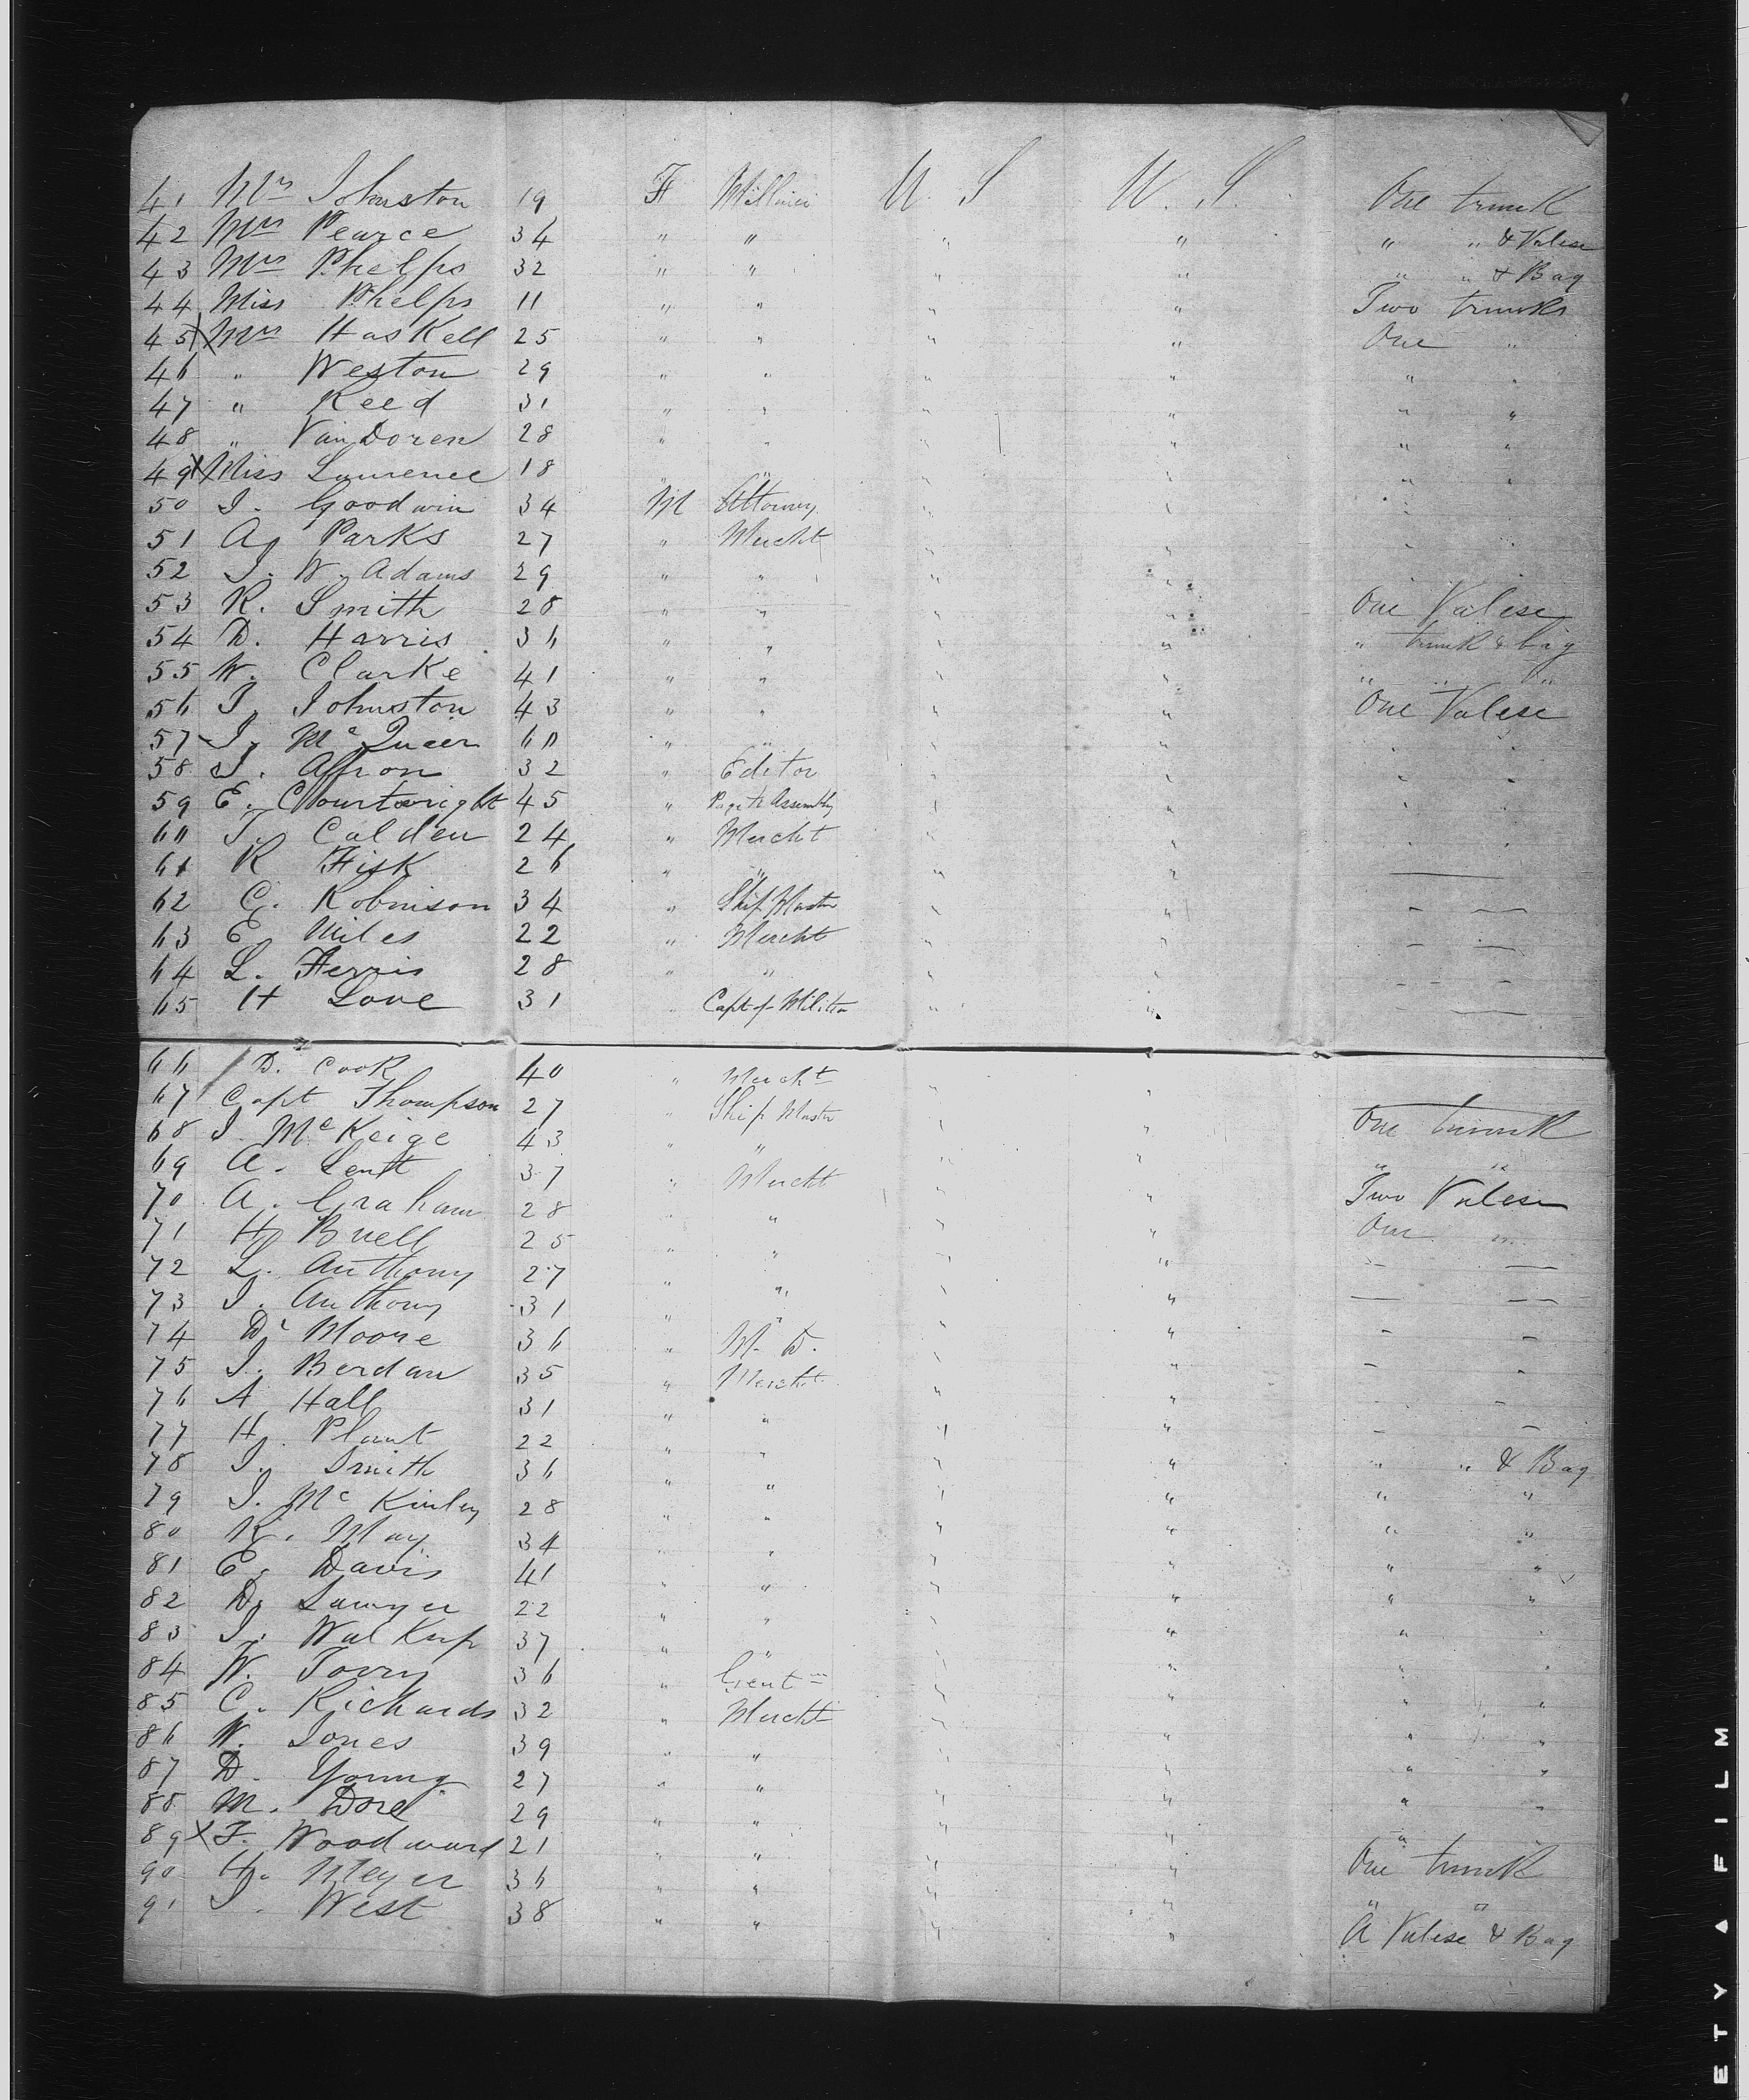 41 Mrs Johnston 19 F Milliner U. S U. S. One trunk
42 Mrs Pearce 34 " " " " " " & Valese
43 Mrs Phelps 32 " " " " " " & Bag
44 Miss Phelps 11 " " " " Two trunks
45 X Mrs Haskell 25 " " " " One "
46 " Weston 29 " " " " " "
47 " Reed 31 " " " " " "
48 " Van Doren 28 " " " " " "
49 X Miss Laurence 18 " " " " " "
50 J. Goodwin 34 M Attorney " " " "
51 A. Parks 27 " Mercht " " " "
52 J. W. Adams 29 " " " "
53 R. Smith 28 " " " " One Valese
54 D. Harris 36 " " " " " trunk & bag
55 W. Clarke 41 " " " " " " "
56 J. Johnston 43 " " " " One Valese
57 J. Mc Queen 60 " " " " " "
58 J. Affron 32 " Editor " " " "
59 E. Courtwright 45 " Page to Assembly " " " "
60 J. Calden 24 " Mercht " " " "
61 R Fisk 26 " " " " —
62 C. Robinson 34 " Ship Master " " - —
63 E Niles 22 " Mercht " " - —
64 L. Ferris 28 " " " " - —
65 H Love 31 " Capt of Militia " " - —
66 D. Cook 40 " Mercht " " —
67 Capt Thompson 27 " Ship Master " " One trunk
68 J. McKeige 43 " " " " " "
69 A. Lentt 37 " Mercht " " Two Valese
70 A. Graham 28 " " " " One "
71 H. Buell 25 " " " " - —
72 L. Anthony 27 " " " " — —
73 J. Anthony 31 " " " " - -
74 Dr Moore 36 " M. D. " " - -
75 J. Berdan 35 " Mercht " " - -
76 A Hall 31 " " " " - -
77 H. Plant 22 " " " " " " & Bag
78 J. Smith 36 " " " " " "
79 J. Mc Kinley 28 " " " " " "
80 R. May 34 " " " " " "
81 E. Davis 41 " " " " " "
82 D. Sawyer 22 " " " " " "
83 J. Walkup 37 " " " " " "
84 W. Torry 36 " Gent " " " "
85 C. Richards 32 " Mercht " " " "
86 W. Jones 39 " " " " " "
87 D. Young 27 " " " " " "
88 M. Dore 29 " " " " "
89 X F. Woodward 21 " " " " One trunk
90 H. Meyer 36 " " " " " "
91 J. West 38 " " " " A Valese & Bag
ETY ▲ FILM